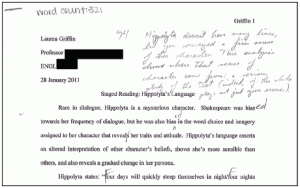 word count=321
Griffin 1
Lauren Griffin
Hippolyta doesn't have many lines,
but you conveyed a
Professor
of her character. This analysis
ENGL
shows where that sense of
28 January 2011
character came from: a
Staged Reading: Hippolyta's Language
Rare in dialogue, Hippolyta is a mysterious character. Shakespeare was bias ed
towards her frequency of dialogue, but he was also bias ed in the word choice and imagery
assigned to her character that reveals her traits and attitude. Hippolyta's language enacts
an altered interpretation of other character's beliefs, shows she's more sensible than
others, and also reveals a gradual change in her persona.
Hippolyta states: "Four days will quickly steep themselves in night/four nights